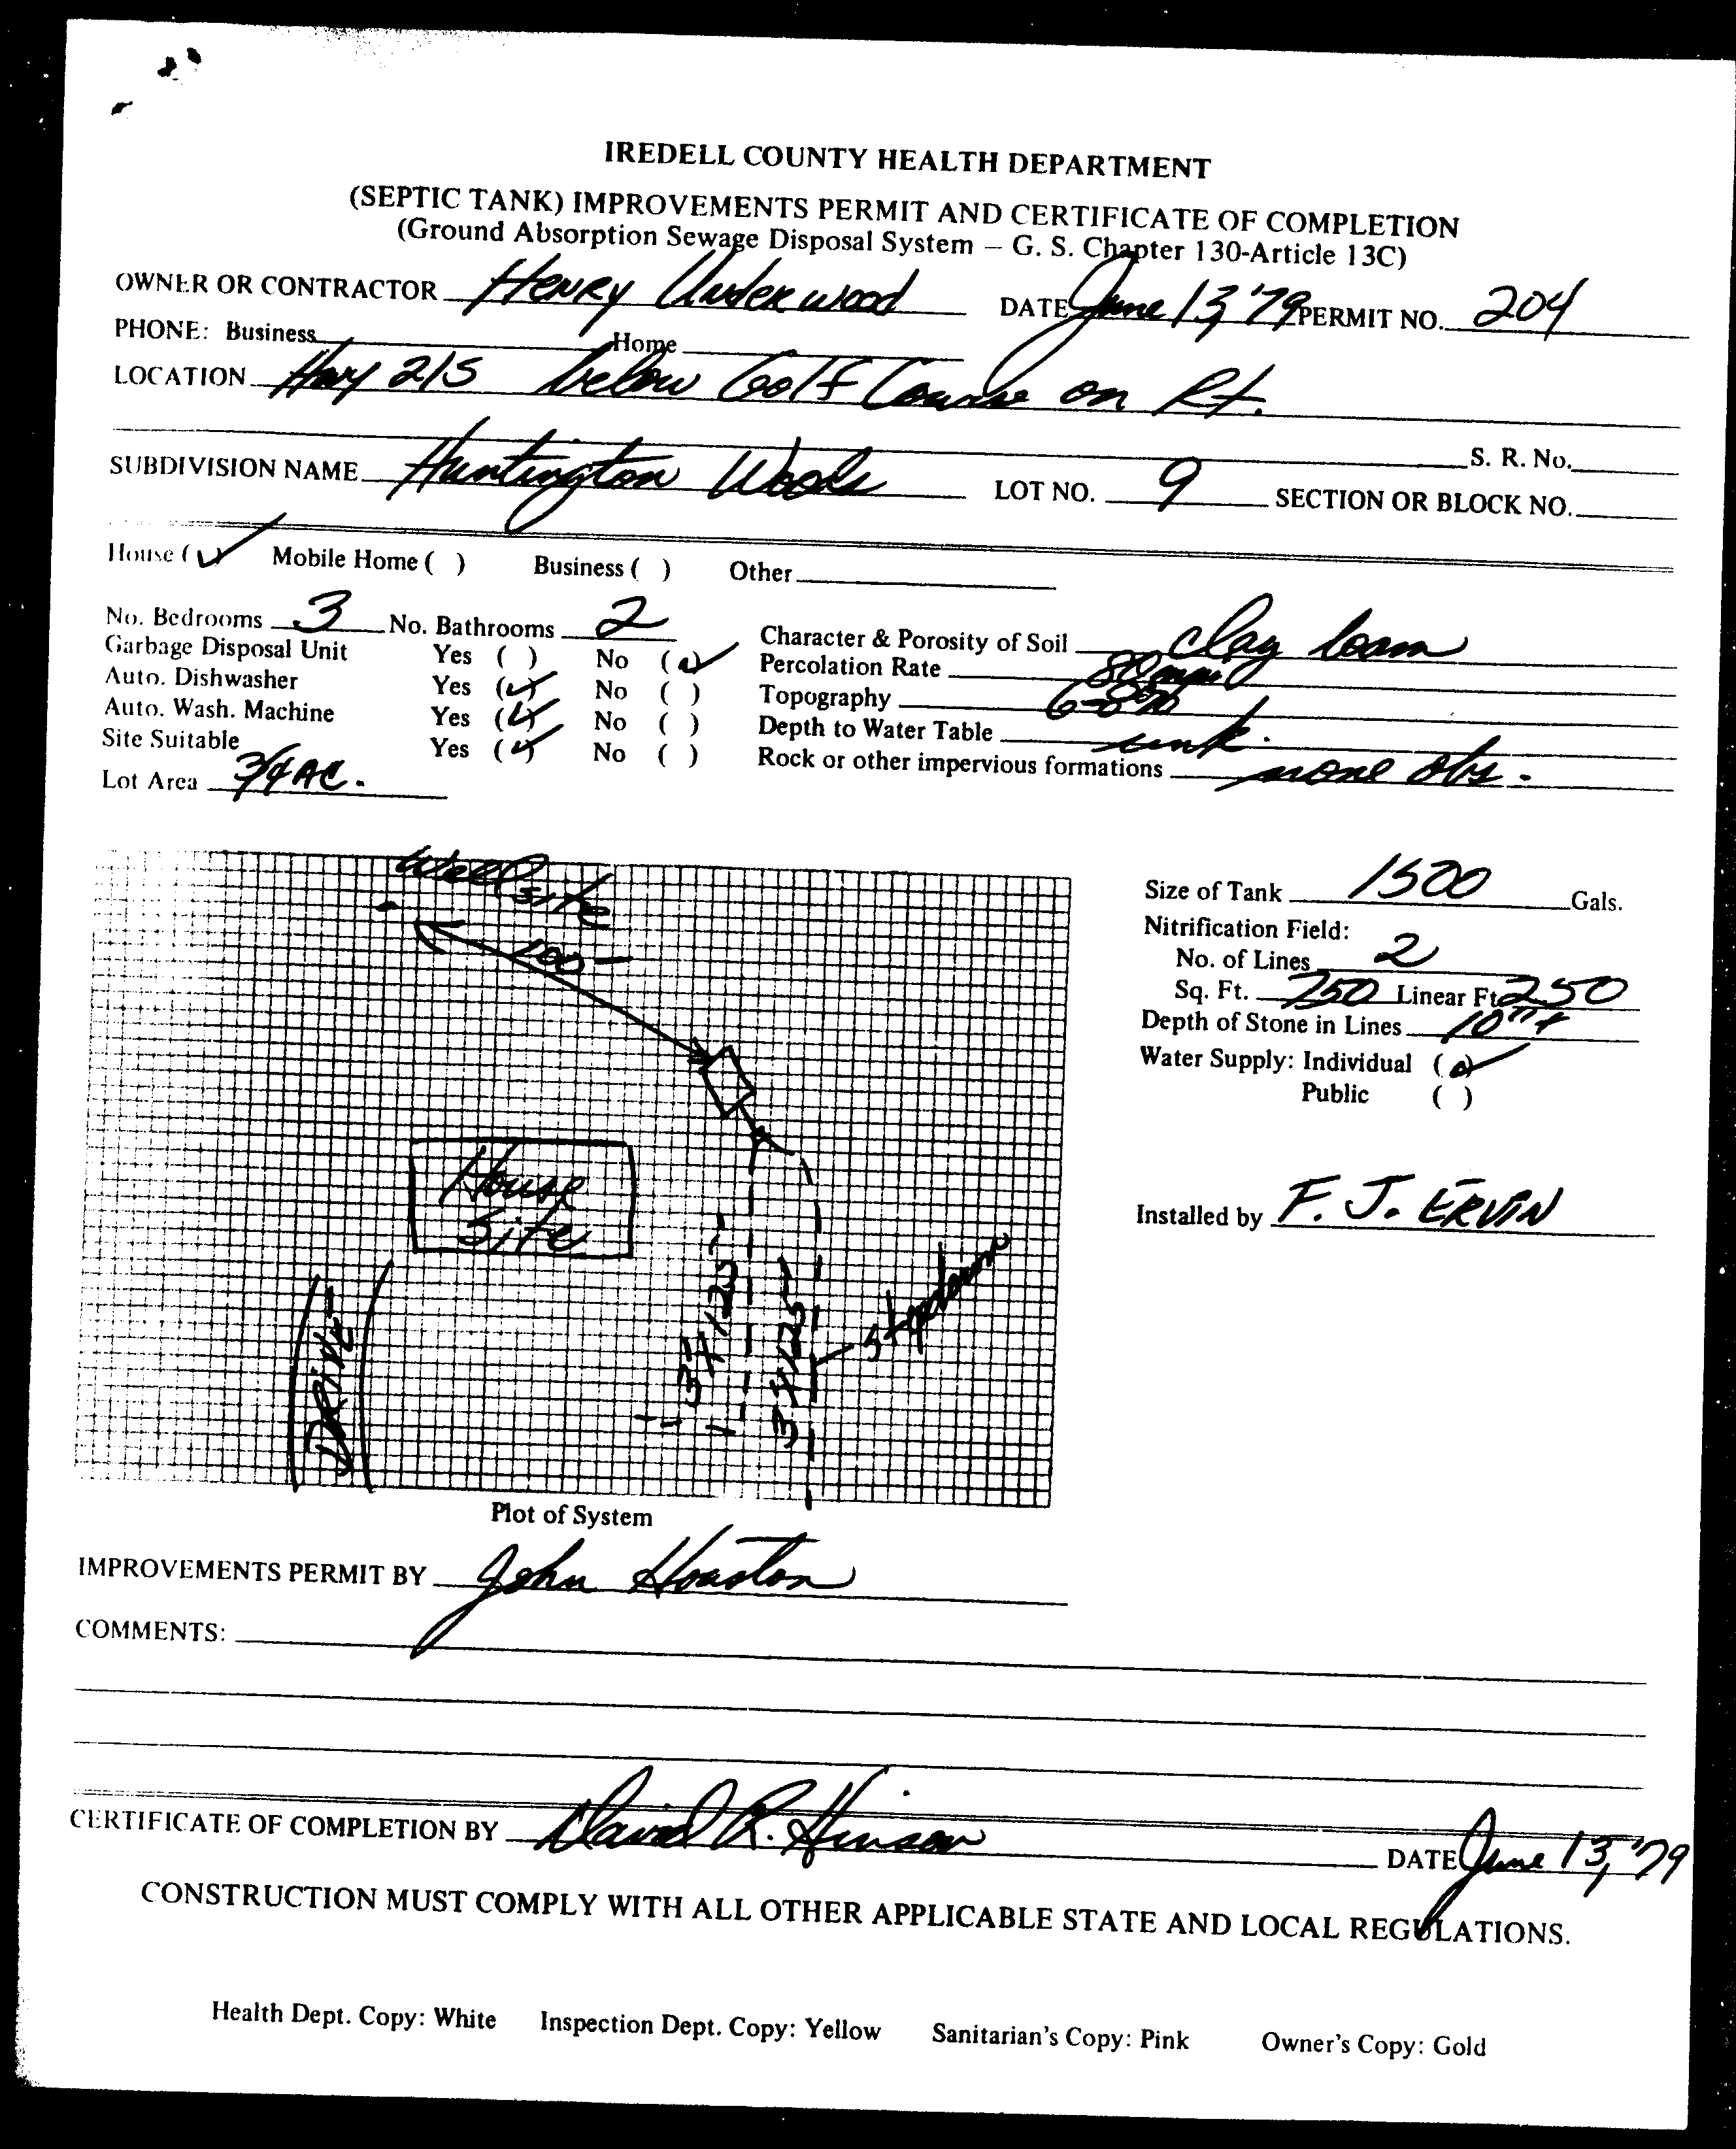 IREDELL COUNTY HEALTH DEPARTMENT
(SEPTIC TANK) IMPROVEMENTS PERMIT AND CERTIFICATE OF COMPLETION
(Ground Absorption Sewage Disposal System – G. S. Chapter 130-Article 13C)
OWNER OR CONTRACTOR Henry Underwood DATE June 13, '79 PERMIT NO. 204
PHONE: Business Home
LOCATION Hwy 21S below Golf Course on Rt.
S. R. No.
SUBDIVISION NAME Huntington Woods LOT NO. 9 SECTION OR BLOCK NO.
House (✓) Mobile Home ( ) Business ( ) Other
No. Bedrooms 3 No. Bathrooms 2 Character & Porosity of Soil clay loam
Garbage Disposal Unit Yes ( ) No (✓) Percolation Rate 80 mpi
Auto. Dishwasher Yes (✓) No ( ) Topography 6-8%
Auto. Wash. Machine Yes (✓) No ( ) Depth to Water Table unk.
Site Suitable Yes (✓) No ( ) Rock or other impervious formations none obs.
Lot Area 3/4 AC.
Well site
100'
House
Site
DRIVE
3' x 125'
3' x 125'
stepdown
Size of Tank 1500 Gals.
Nitrification Field:
No. of Lines 2
Sq. Ft. 750 Linear Ft 250
Depth of Stone in Lines 10"+
Water Supply: Individual (✓)
Public ( )
Installed by F. J. ERVIN
Plot of System
IMPROVEMENTS PERMIT BY John Houston
COMMENTS:
CERTIFICATE OF COMPLETION BY David R. Hinson DATE June 13, '79
CONSTRUCTION MUST COMPLY WITH ALL OTHER APPLICABLE STATE AND LOCAL REGULATIONS.
Health Dept. Copy: White Inspection Dept. Copy: Yellow Sanitarian's Copy: Pink Owner's Copy: Gold